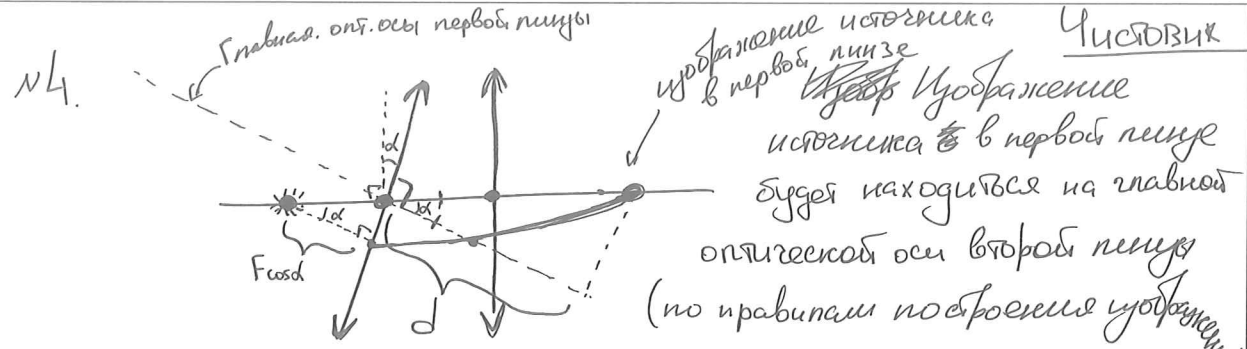 Чистовик
Главная. опт. осы первой линзы
изображение источника
в первой линзе
№4.
Изображение
источника в первой линзе
будет находиться на главной
оптической оси второй линзы
(по правилам построения изображен
α
α
α
Fcosα
d